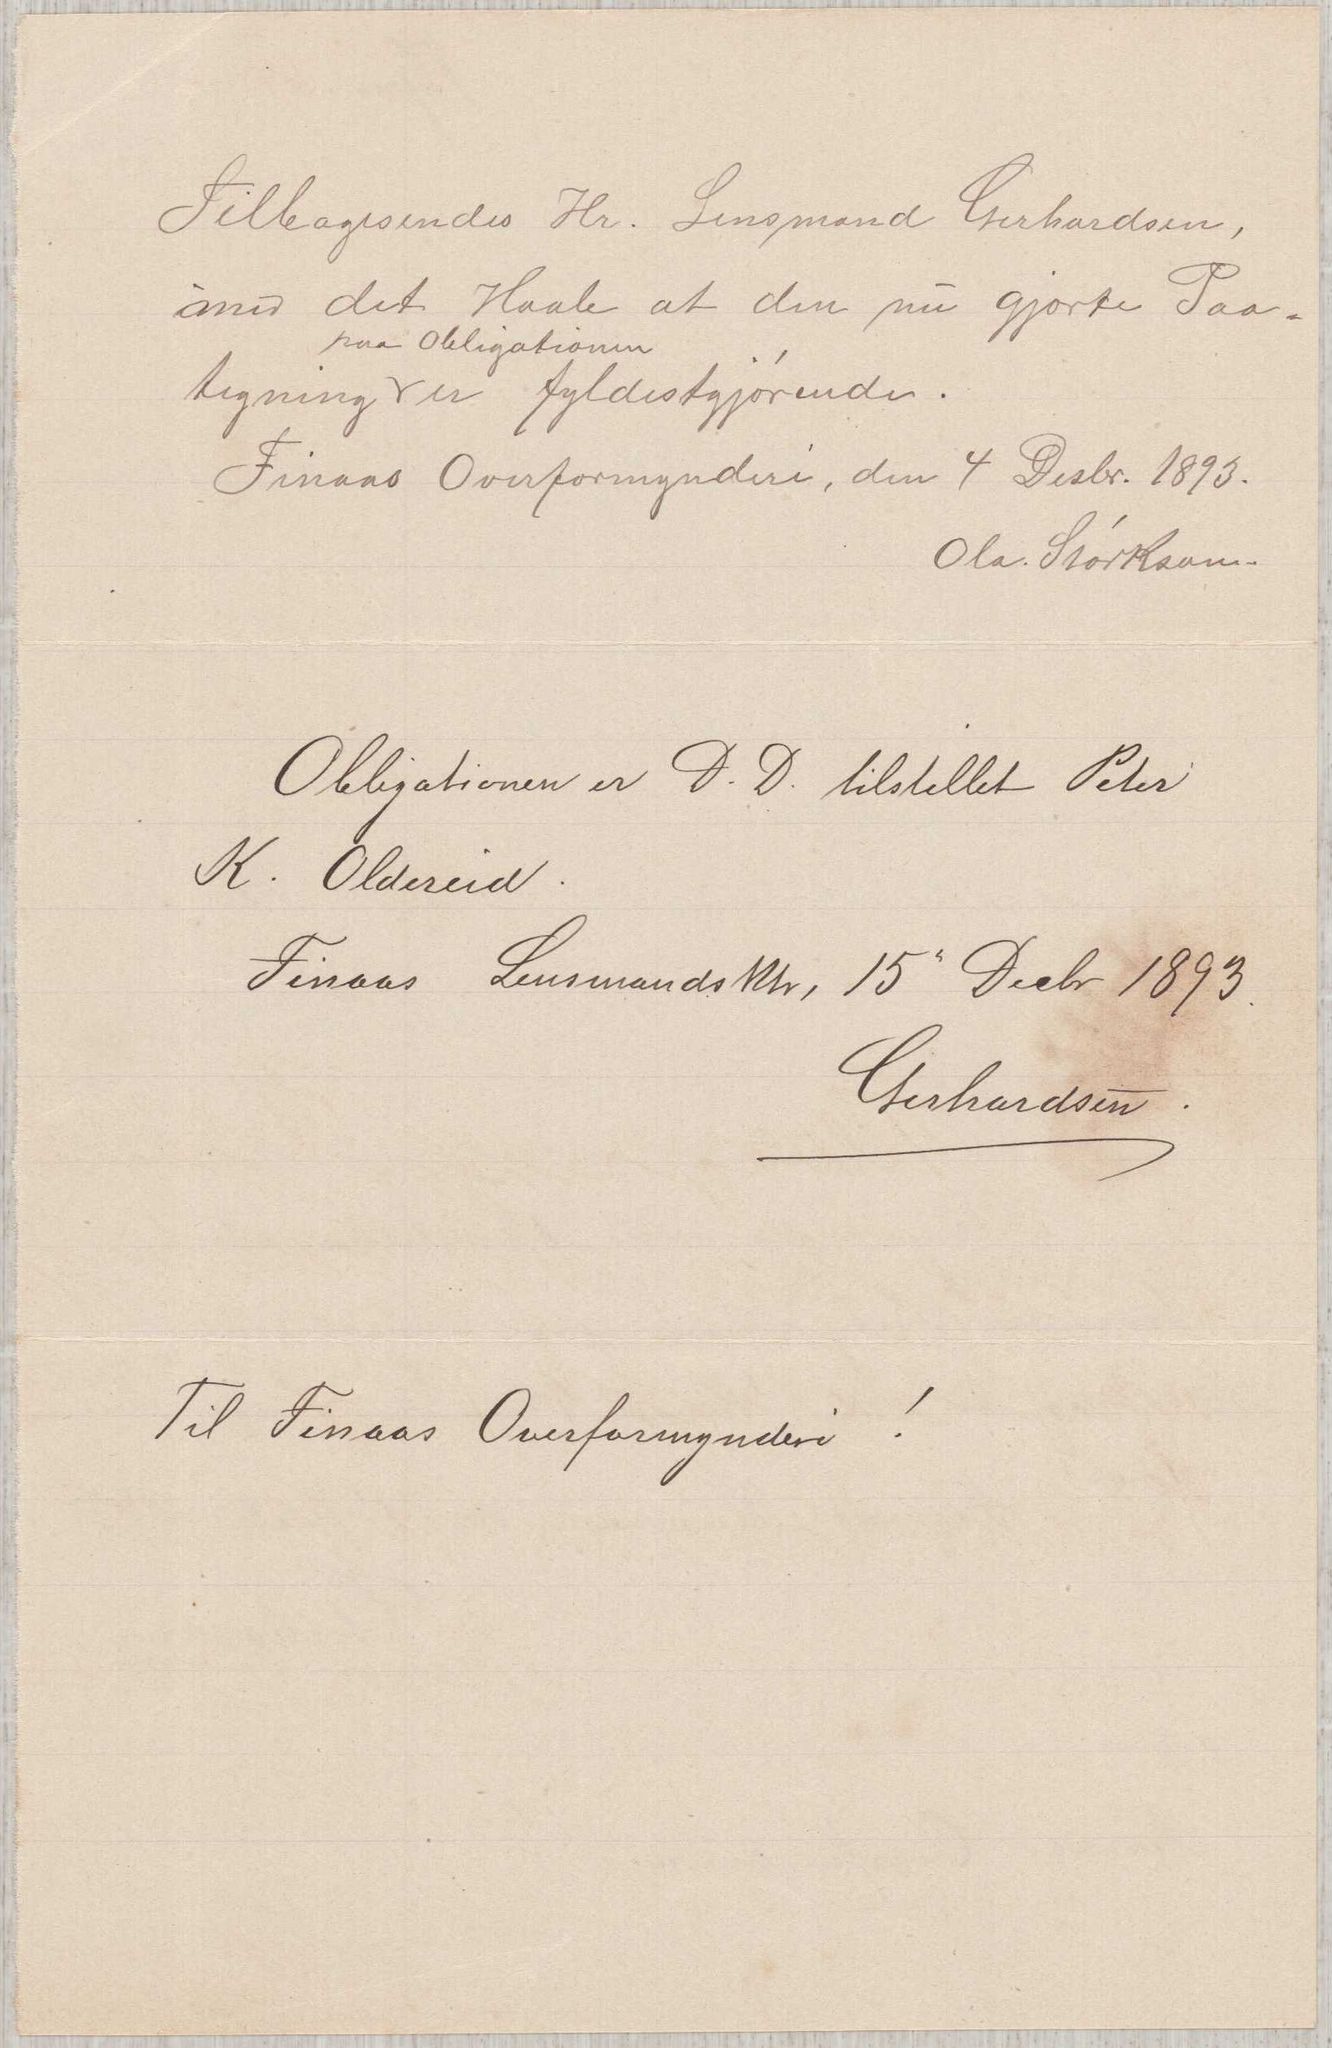 Tilbagesendes Hr. Lensmand Gerhardsen,
med det Haab at den nu gjorte Paa-
paa Obligationen
tegning er fyldestgjörende.
Finaas Overformynderi, den 4 Desbr. 1893.
Ola. Störksom.
Obligationen er D. D. tilstillet Peter
K. Oldereid.
Finaas Lensmandsktr, 15" Decbr 1893.
Gerhardsen.
Til Finaas Overformynderi!